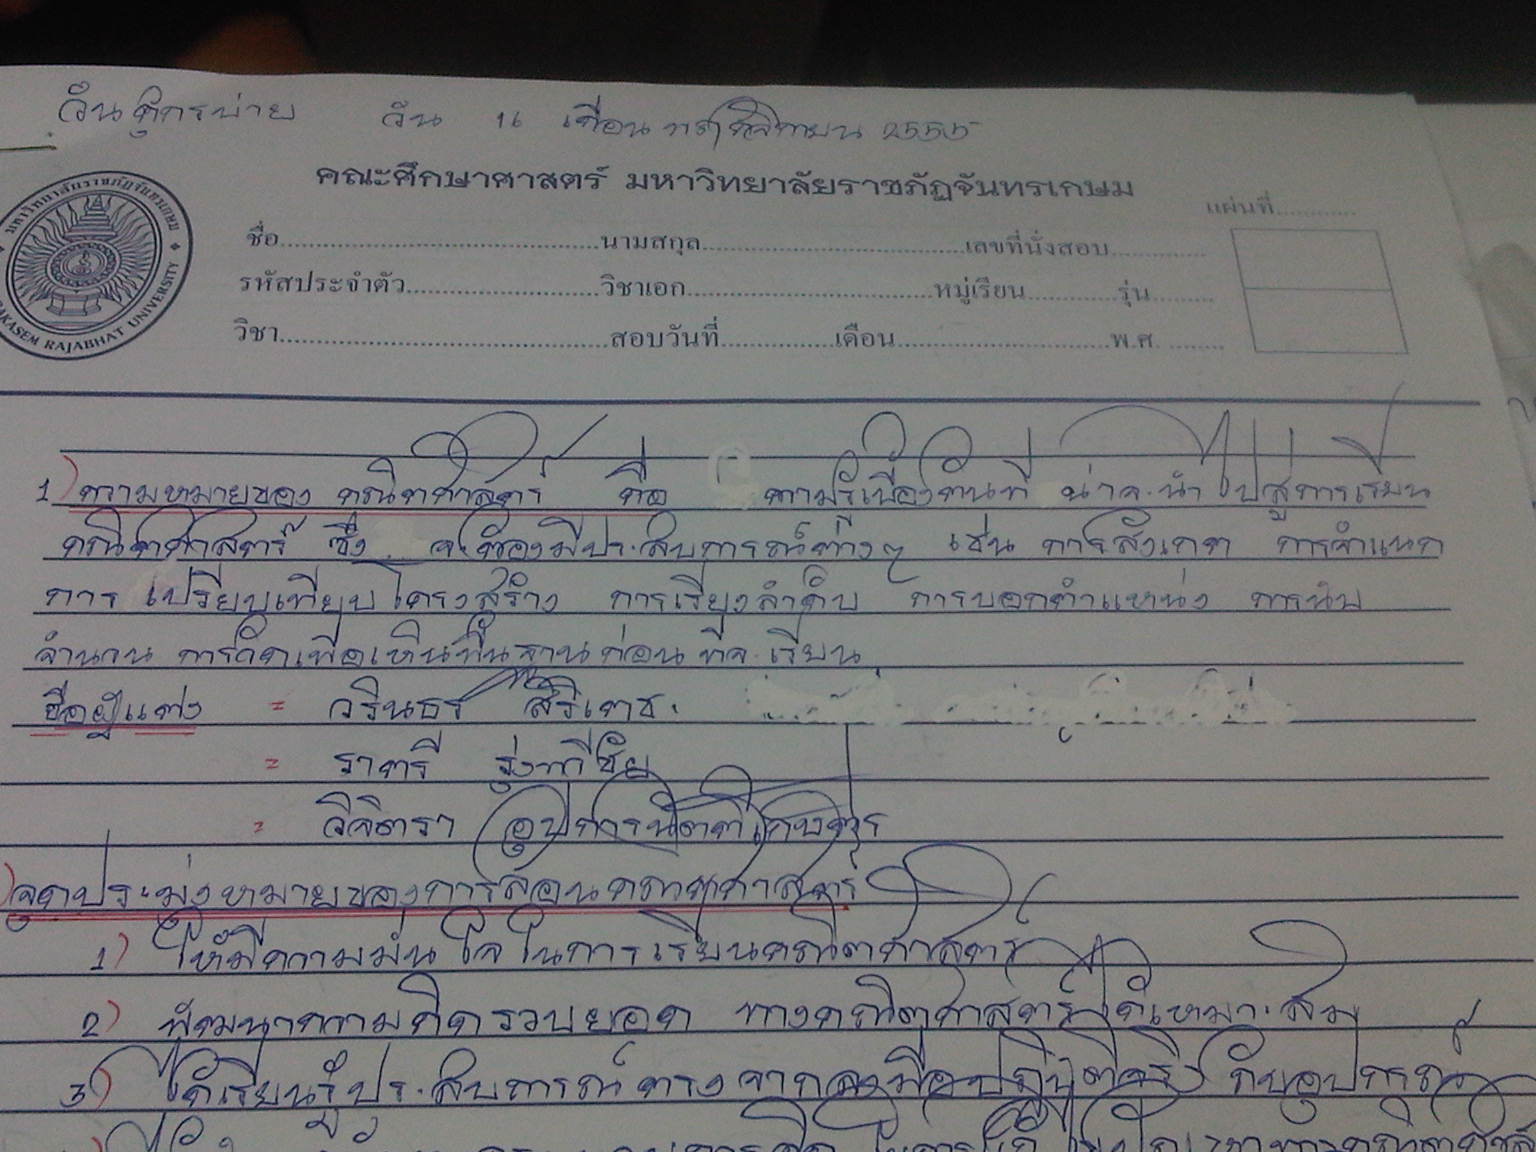 วันศุกร์บ่าย วัน 16 เดือน พฤศจิกายน 2555
คณะศึกษาศาสตร์ มหาวิทยาลัยราชภัฏจันทรเกษม
แผ่นที่............
ชื่อ........................................นามสกุล........................................เลขที่นั่งสอบ...............
รหัสประจำตัว.........................วิชาเอก................................หมู่เรียน............รุ่น.........
วิชา..........................................สอบวันที่...............เดือน............................พ.ศ. .........
มหาวิทยาลัยราชภัฏจันทรเกษม
RAKASEM RAJABHAT UNIVERSITY
1) ความหมายของ คณิตศาสตร์ คือ ความรู้เบื้องต้นที่ น่าจะนำไปสู่การเรียน
คณิตศาสตร์ ซึ่ง จะต้องมีประสบการณ์ต่างๆ เช่น การสังเกต การจำแนก
การ เปรียบเทียบโครงสร้าง การเรียงลำดับ การบอกตำแหน่ง การนับ
จำนวน การคิดเพื่อเป็นพื้นฐานก่อน ที่จะเรียน
ชื่อผู้แต่ง = วรินธร สิริเดชะ
= ราตรี
= วิจิตรา
จุดประมุ่งหมายของการสอนคณิตศาสตร์
1) ให้มีความมั่นใจในการเรียนคณิตศาสตร์
2) พัฒนาความคิดรวบยอด ทางคณิตศาสตร์ได้เหมาะสม
3) ได้เรียนรู้ประสบการณ์ตรงจากลงมือปฏิบัติจริง กับอุปกรณ์